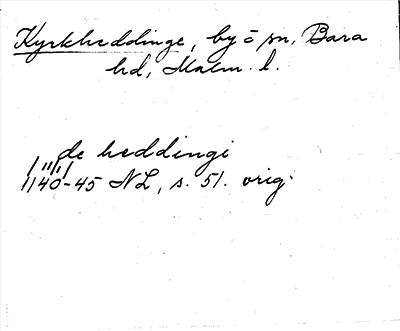 Kyrkheddinge, by o̅ sn, Bara
hd, Malm. l.
de heddingi
1140-45 NL, s. 51. orig.